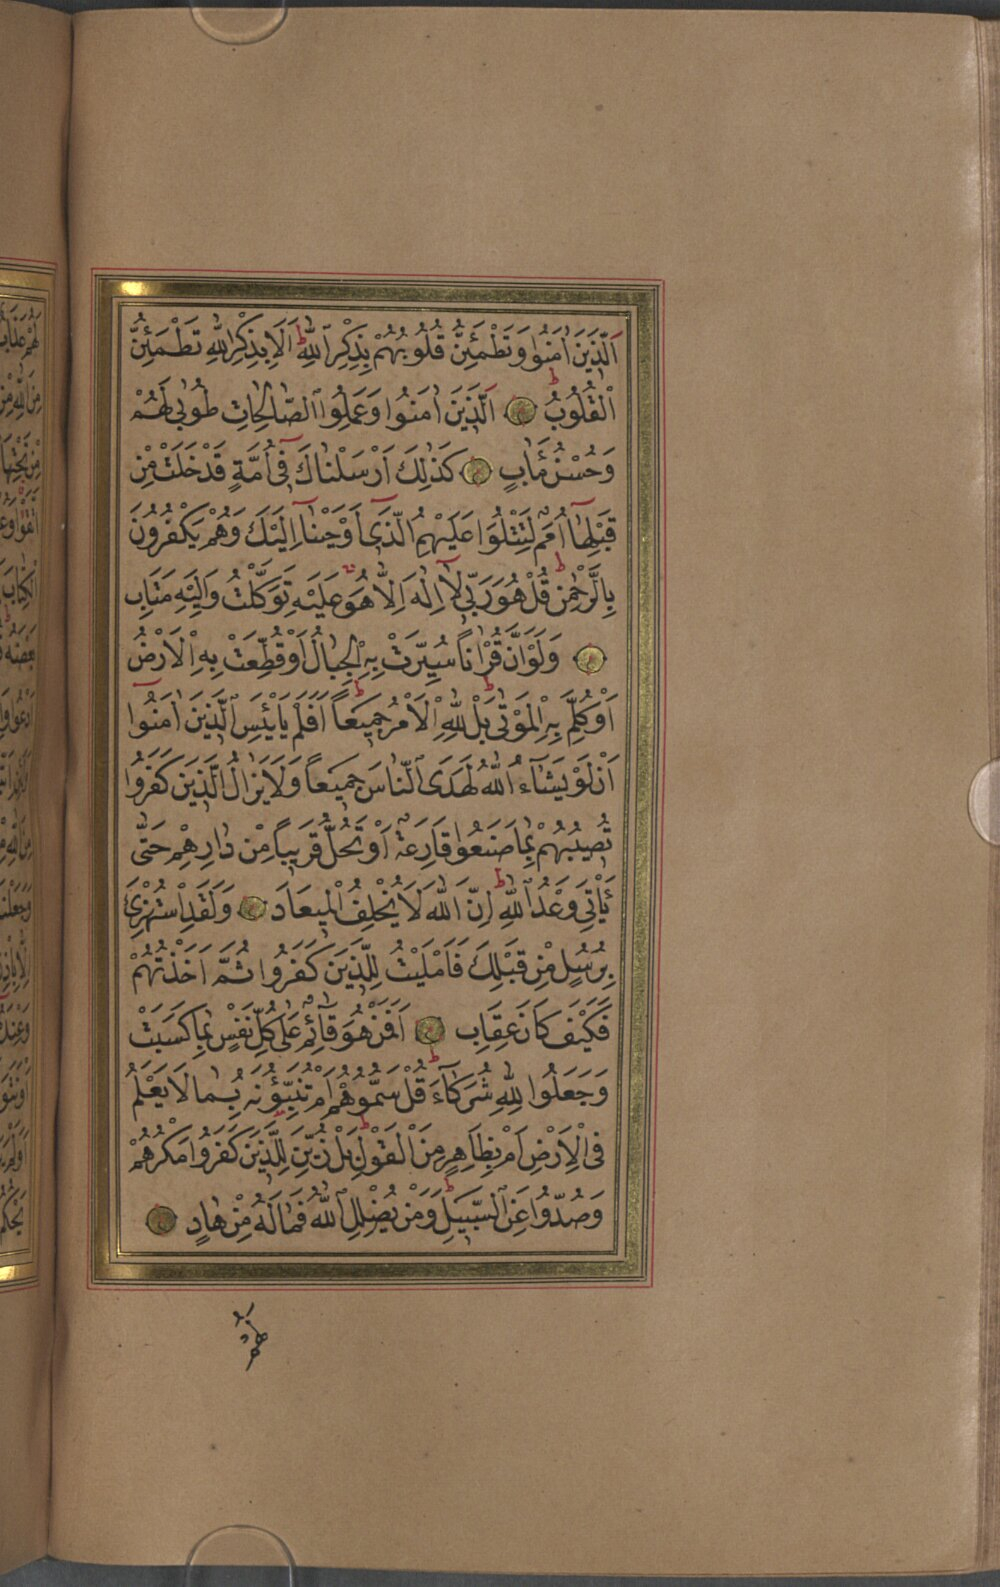 اَلَّذِينَ اٰمَنُوا وَتَطْمَئِنُّ قُلُوبُهُمْ بِذِكْرِ اللّٰهِ اَلَا بِذِكْرِ اللّٰهِ تَطْمَئِنُّ
الْقُلُوبُ اَلَّذِينَ اٰمَنُوا وَعَمِلُوا الصَّالِحَاتِ طُوبٰى لَهُمْ
وَحُسْنُ مَاٰبٍ كَذٰلِكَ اَرْسَلْنَاكَ فِٓى اُمَّةٍ قَدْ خَلَتْ مِنْ
قَبْلِهَٓا اُمَمٌ لِتَتْلُوَا عَلَيْهِمُ الَّذِٓى اَوْحَيْنَٓا اِلَيْكَ وَهُمْ يَكْفُرُونَ
بِالرَّحْمٰنِ قُلْ هُوَ رَبِّى لَٓا اِلٰهَ اِلَّا هُوَ عَلَيْهِ تَوَكَّلْتُ وَاِلَيْهِ مَتَابِ
وَلَوْ اَنَّ قُرْاٰنًا سُيِّرَتْ بِهِ الْجِبَالُ اَوْ قُطِّعَتْ بِهِ الْاَرْضُ
اَوْ كُلِّمَ بِهِ الْمَوْتٰى بَلْ لِلّٰهِ الْاَمْرُ جَمِيعًا اَفَلَمْ يَايْئَسِ الَّذِينَ اٰمَنُٓوا
اَنْ لَوْ يَشَٓاءُ اللّٰهُ لَهَدَى النَّاسَ جَمِيعًا وَلَا يَزَالُ الَّذِينَ كَفَرُوا
تُصِيبُهُمْ بِمَا صَنَعُوا قَارِعَةٌ اَوْ تَحُلُّ قَرِيبًا مِنْ دَارِهِمْ حَتّٰى
يَأْتِىَ وَعْدُ اللّٰهِ اِنَّ اللّٰهَ لَا يُخْلِفُ الْمِيعَادَ وَلَقَدِ اسْتُهْزِئَ
بِرُسُلٍ مِنْ قَبْلِكَ فَاَمْلَيْتُ لِلَّذِينَ كَفَرُوا ثُمَّ اَخَذْتُهُمْ
فَكَيْفَ كَانَ عِقَابِ اَفَمَنْ هُوَ قَٓائِمٌ عَلٰى كُلِّ نَفْسٍ بِمَا كَسَبَتْ
وَجَعَلُوا لِلّٰهِ شُرَكَٓاءَ قُلْ سَمُّوهُمْ اَمْ تُنَبِّؤُنَهُ بِمَا لَا يَعْلَمُ
فِى الْاَرْضِ اَمْ بِظَاهِرٍ مِنَ الْقَوْلِ بَلْ زُيِّنَ لِلَّذِينَ كَفَرُوا مَكْرُهُمْ
وَصُدُّوا عَنِ السَّبِيلِ وَمَنْ يُضْلِلِ اللّٰهُ فَمَا لَهُ مِنْ هَادٍ
لَهُمْ